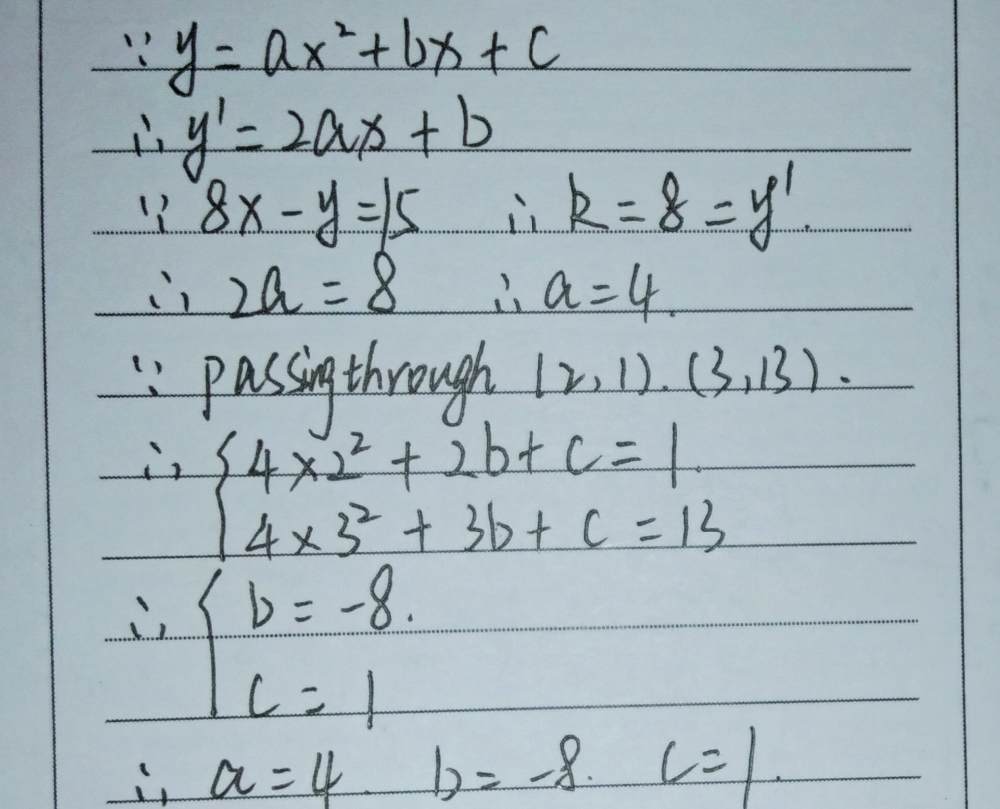 ∵ y = ax² + bx + c
∴ y' = 2ax + b
∵ 8x - y = 15 ∴ k = 8 = y'.
∴ 2a = 8 ∴ a = 4.
∵ passing through (2,1). (3,13).
∴ { 4×2² + 2b + c = 1.
4×3² + 3b + c = 13
∴ { b = -8.
c = 1
∴ a = 4 b = -8. c = 1.